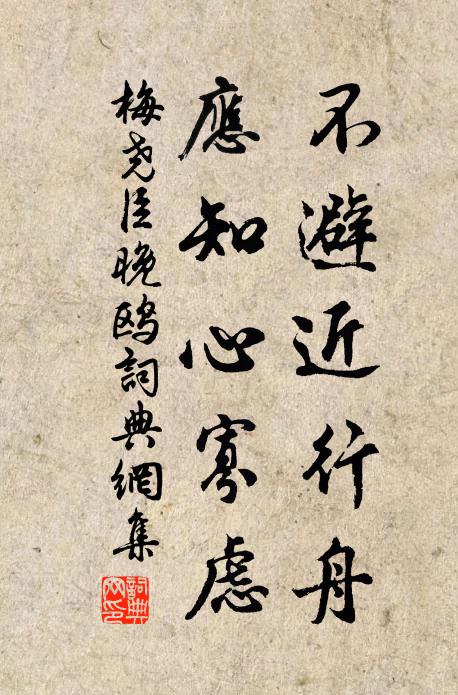 不避近行舟
應知心寡慮
梅堯臣晚鷗詞典網集
詞典網印